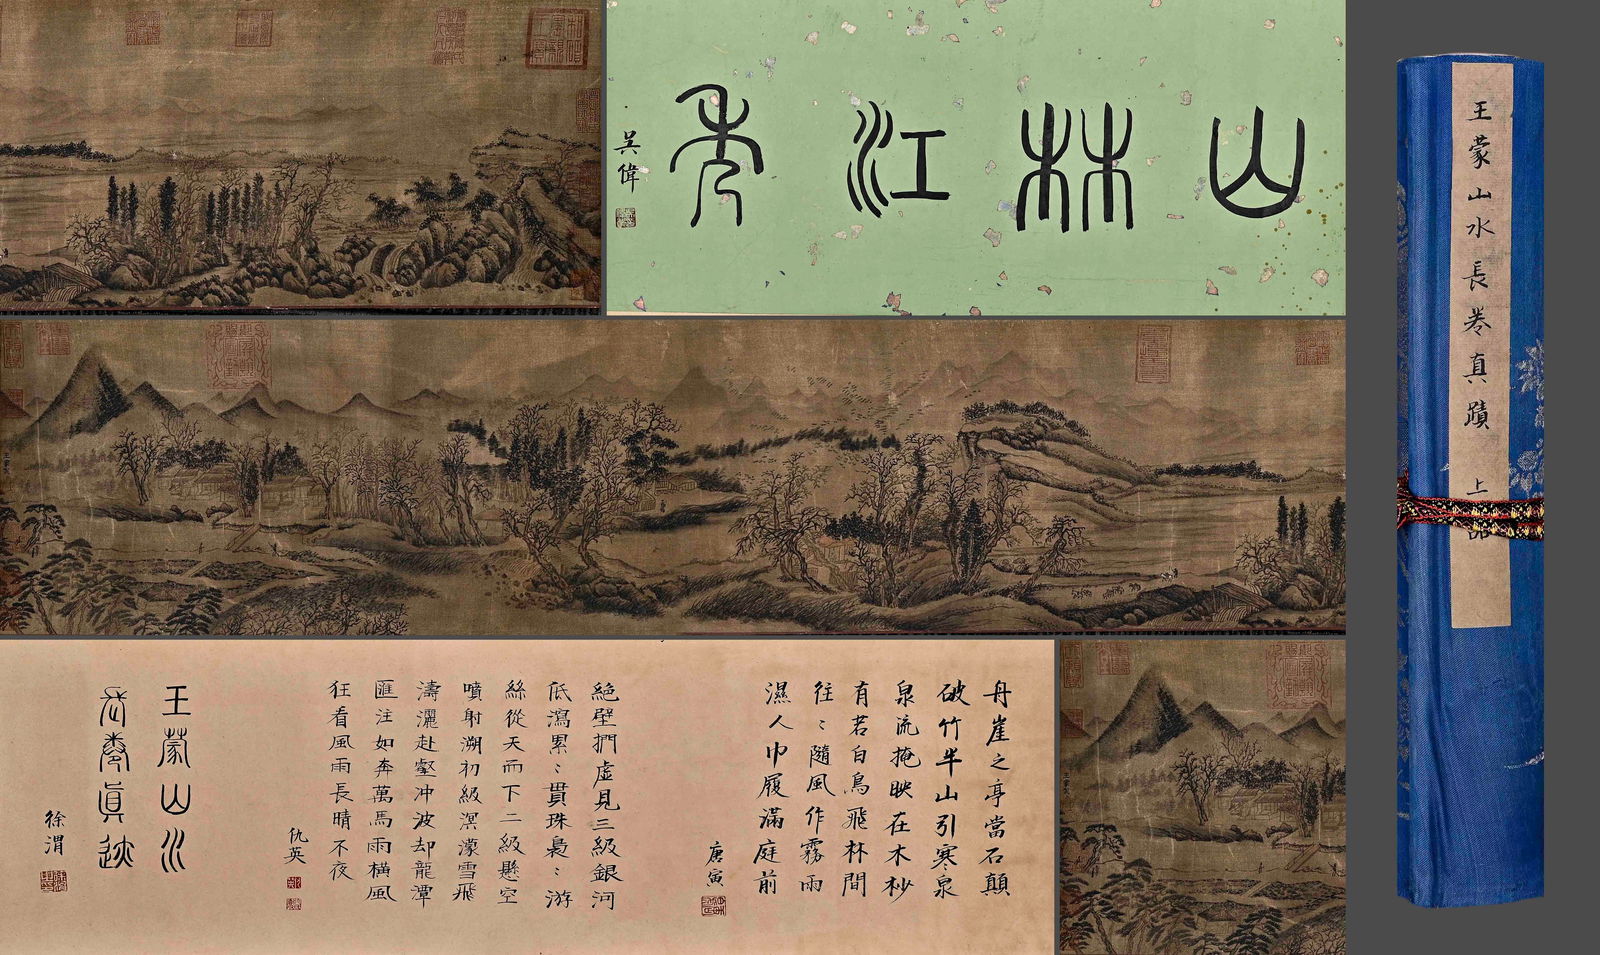 山林江秀
吳偉
王蒙山水長卷真蹟 上品
丹崖之亭當石顛
破竹半山引寒泉
泉流掩映在木杪
有若白鳥飛林間
往〻隨風作霧雨
濕人巾履滿庭前
唐寅
絕壁捫虛見三級銀河
低瀉累〻貫珠裊〻游
絲從天而下二級懸空
噴射溯初級溟濛雪飛
濤灑赴壑冲波却龍潭
匯注如奔萬馬雨橫風
狂看風雨長晴不夜
仇英
王蒙山水
長卷眞迹
徐渭